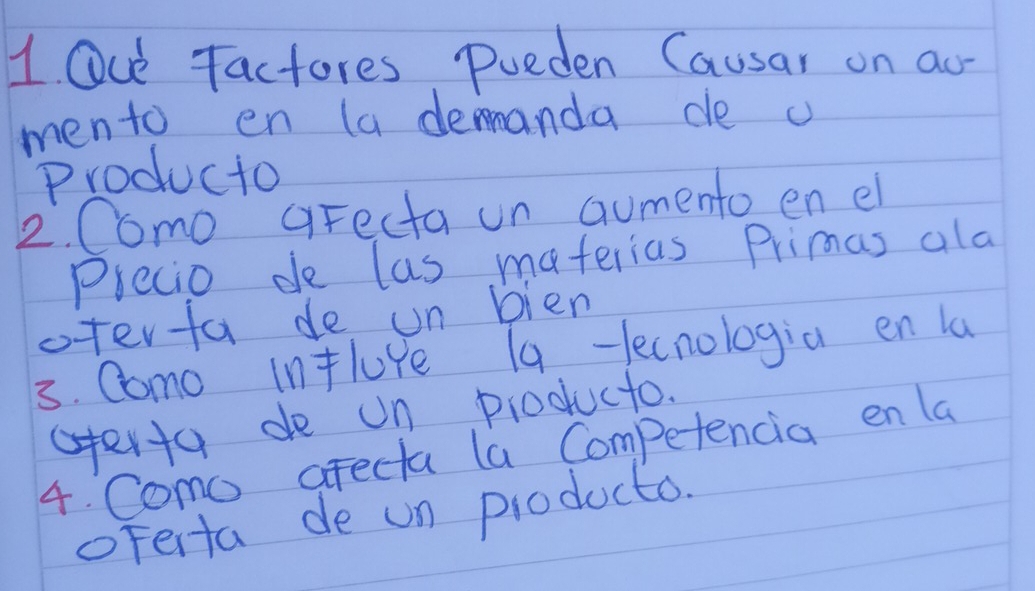 1. Qué Factores Pueden Causar un au-
mento en la demanda de u
Producto
2. Como afecta un aumento en el
Precio de las materias Primas ala
oferta de un bien
3. Como influye la tecnologia en la
oferta de un producto.
4. Como afecta la Competencia en la
oferta de un producto.